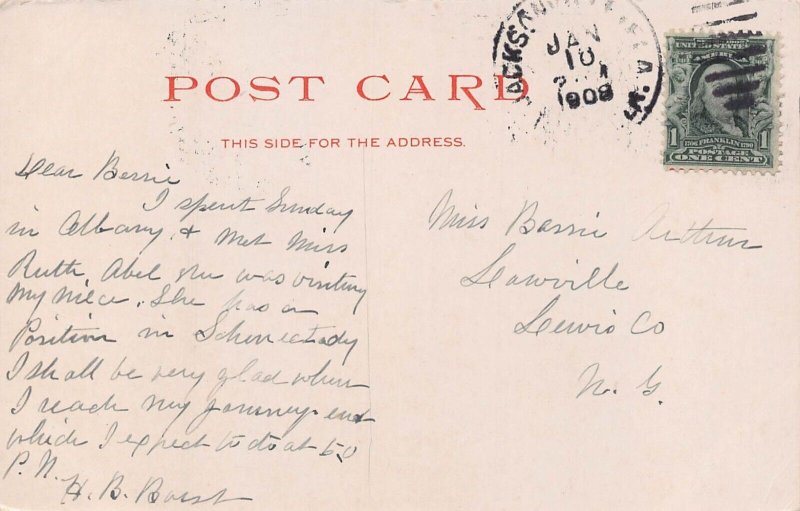 POST CARD
THIS SIDE FOR THE ADDRESS.
JACKS
JAN
10
1908
UNITED STATES
AMERICA
1
FRANKLIN
POSTAGE
ONE CENT
Dear Bessie
I spent Sunday
in Albany & met Miss
Ruth Abel she was visiting
my niece. She has a
Position in Schenectady
I shall be very glad when
I reach my journeys end
which I expect to do at 50
P.M.
H. B. Borst
Miss Bessie Arthur
Lowville
Lewis Co
N. Y.